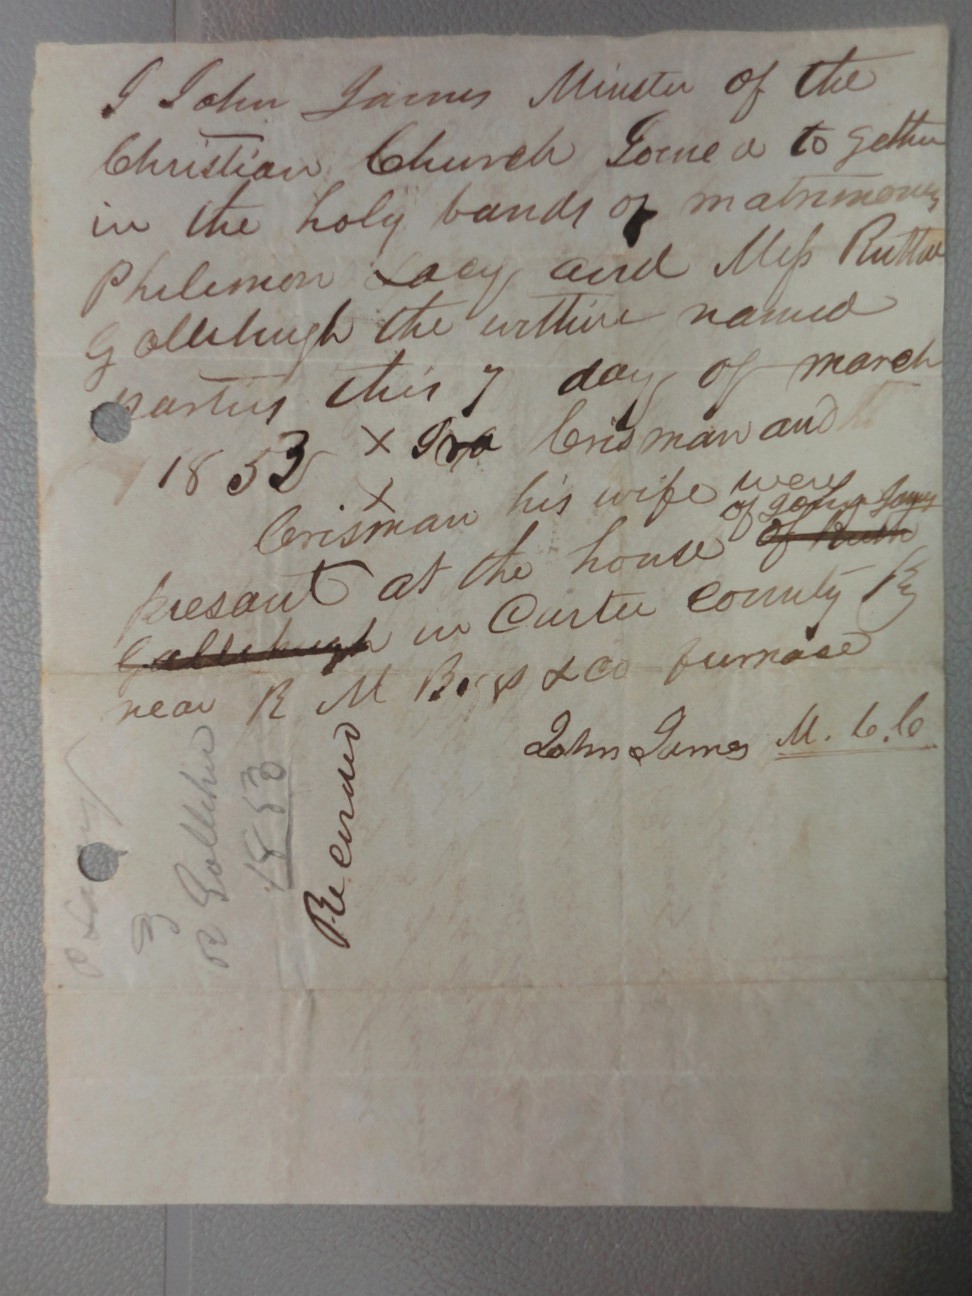 I John James Minster of the
Christian Church Joined to gether
in the holy bands of matrimony
Philemon Lacy and Miss Ruttha
Gollehugh the within named
parties this 7 day of march
1853 x Ira Crisman and
x Crisman his wife were
of John James
present at the house of Ruth
Gollehugh in Carter County Ky
near R M Bigs & Co furnace
John James M. C. C.
P Lacy
3
R Gollehu
1853
Recorded